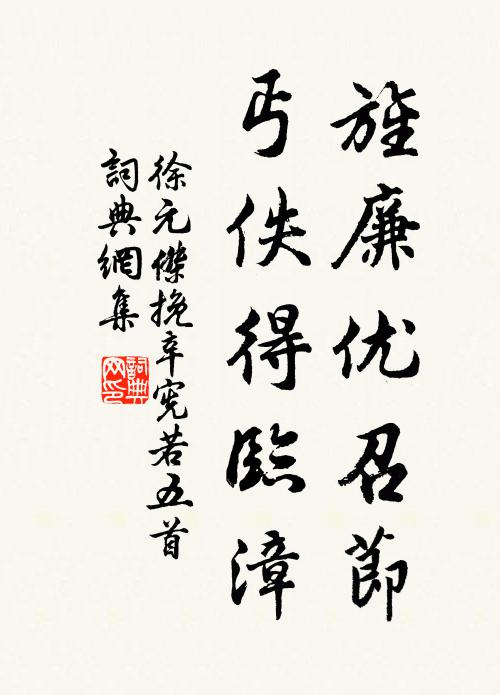 旌廉优召節
丐佚得臨漳
徐元傑挽辛宪若五首
詞典網集
詞典网印